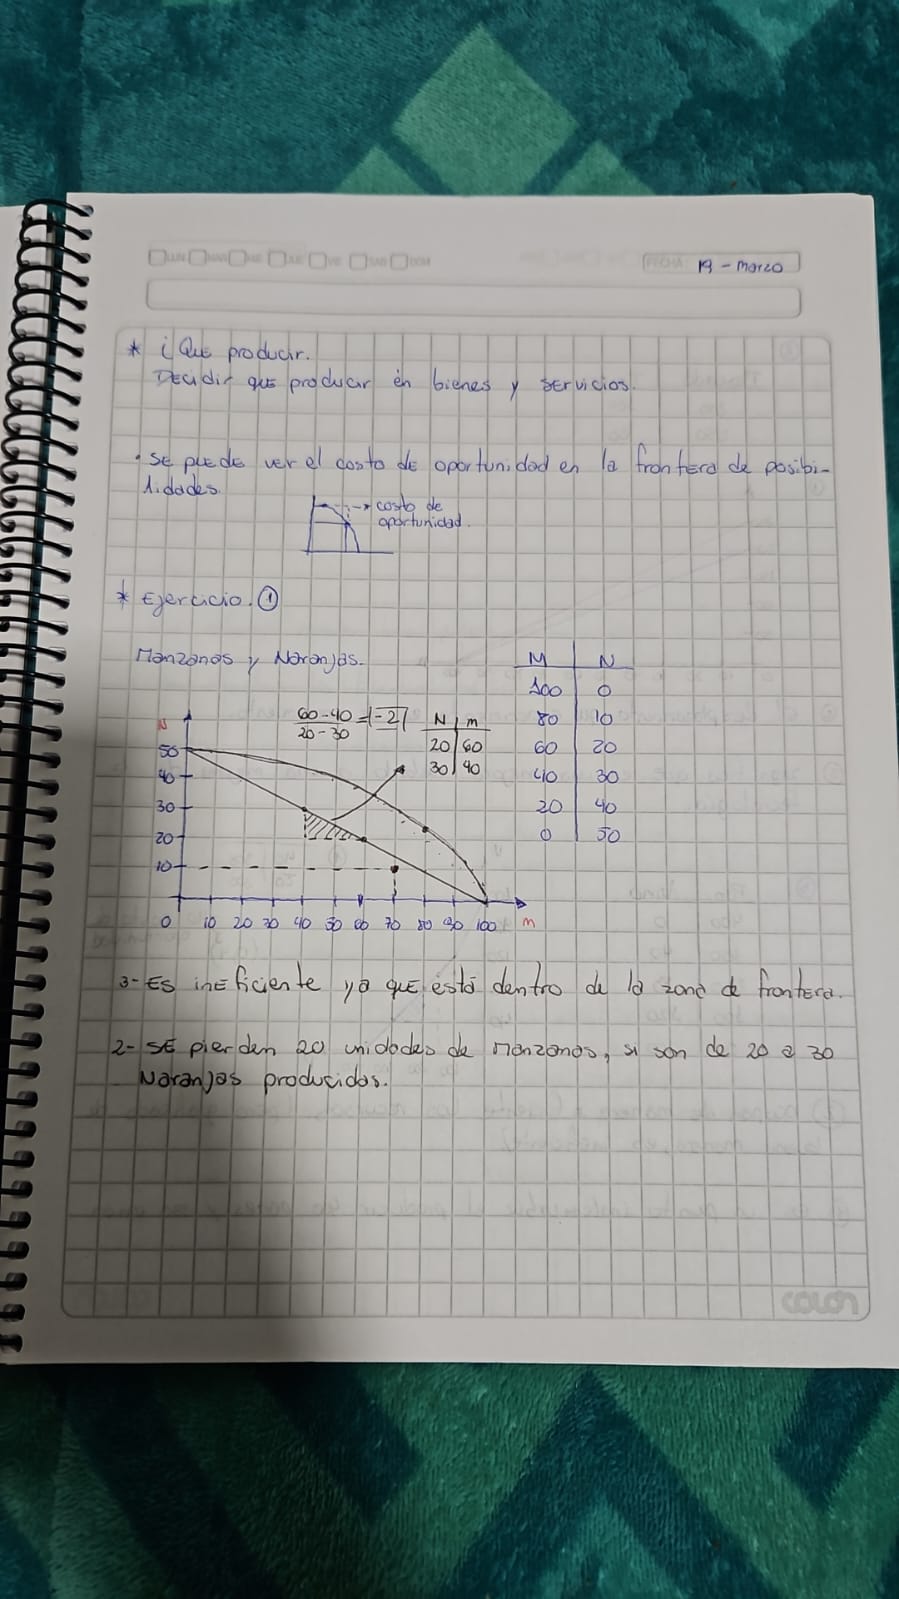 LUN MAR MIE JUE VIE SAB DOM
FECHA: 19 - Marzo
* ¿Que producir.
Decidir que producir en bienes y servicios.
• Se puede ver el costo de oportunidad en la frontera de posibi-
lidades.
→ costo de
oportunidad.
* Ejercicio. ①
Manzanas y Naranjas.
M N
100 0
80 10
60 20
40 30
20 40
0 50
60-40 = |-2|
20-30
N m
20 60
30 40
N
50
40
30
20
10
0 10 20 30 40 50 60 70 80 90 100 m
3- Es ineficiente ya que está dentro de la zona de frontera.
2- Se pierden 20 unidades de Manzanas, si son de 20 a 30
Naranjas producidas.
colon